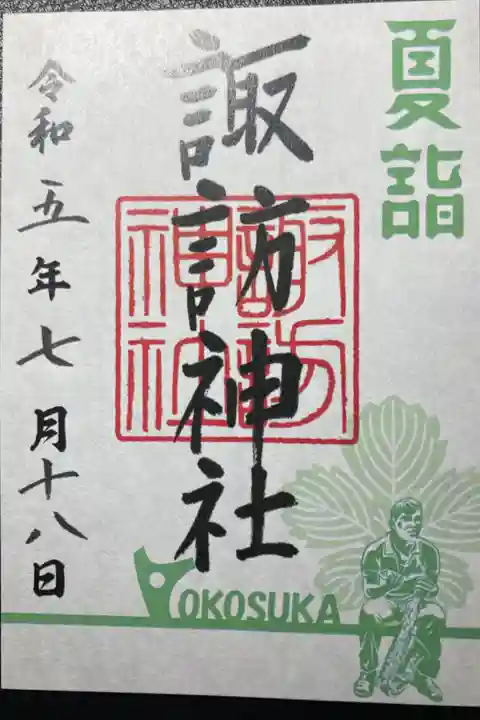 夏詣
諏訪神社
諏訪
神社
令和五年七月十八日
YOKOSUKA